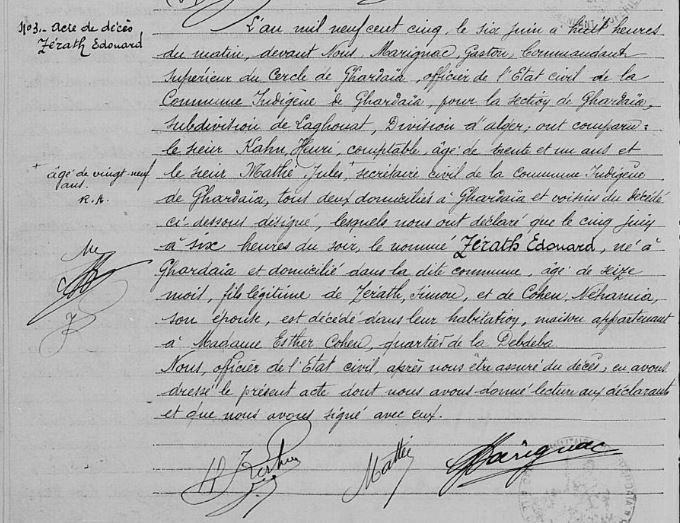 N°3._ Acte de décès
Zérath Edouard
L'an mil neuf cent cinq, le six juin à huit heures
du matin, devant Nous, Marignac, Gaston, Commandant
Supérieur du Cercle de Ghardaïa, officier de l'Etat civil de la
Commune Indigène de Ghardaïa, pour la section de Ghardaïa,
subdivision de Laghouat, Division d'Alger; ont comparu:
le sieur Kahn, Henri, comptable, âgé de trente et un ans et
le sieur Mathé Jules, + secrétaire civil de la Commune Indigène
de Ghardaïa, tous deux domiciliés à Ghardaïa et voisins du décédé
ci-dessous désigné, lesquels nous ont déclaré que le cinq juin
à six heures du soir, le nommé Zérath Edouard, né à
Ghardaïa et domicilié dans la dite commune, âgé de seize
mois, fils légitime de Zerath, Simon, et de Cohen, Nehamia,
son épouse, est décédé dans leur habitation, maison appartenant
à Madame Esther Cohen, quartier de la Debdeba
Nous, officier de l'Etat civil, après nous être assuré du décès, en avons
dressé le présent acte dont nous avons donné lecture aux déclarants
et que nous avons signé avec eux.
+ âgé de vingt neuf
ans.
Mathé
Marignac